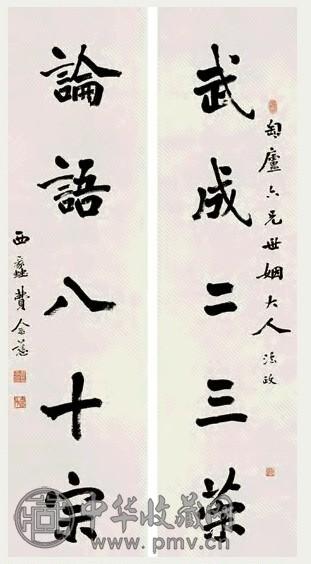 匋廬六兄世姻大人法政
武成二三策
論語八十宗
西蠡費念慈
中华收藏网
www.pmv.cn